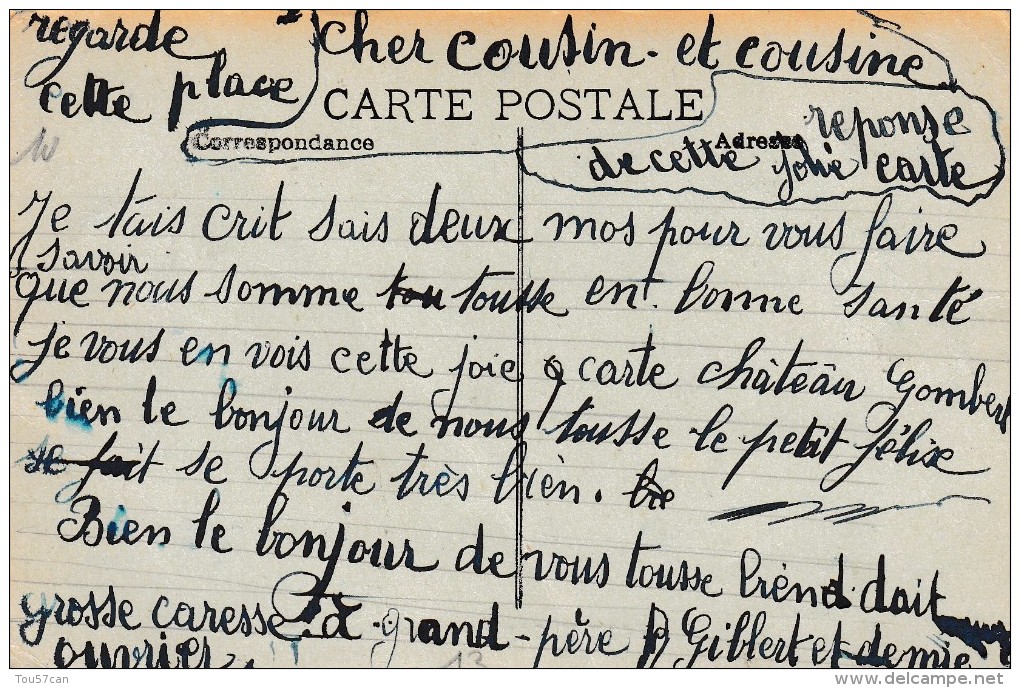 regarde
cette place
Cher cousin - et cousine
CARTE POSTALE
Correspondance
Adresse
reponse
de cette jolie carte
10
Je tàis crit sais deux mos pour vous faire
savoir
que nous somme tou tousse en bonne santé
je vous en vois cette joie carte châteâu Gombert
bien le bonjour de nous tousse le petit félixe
se fait se porte très bien.
Bien le bonjour de vous tousse bien dait
grosse caresse à grand-père Gilbert et demie
ouvrier
13
Tou57can
delcampe.net